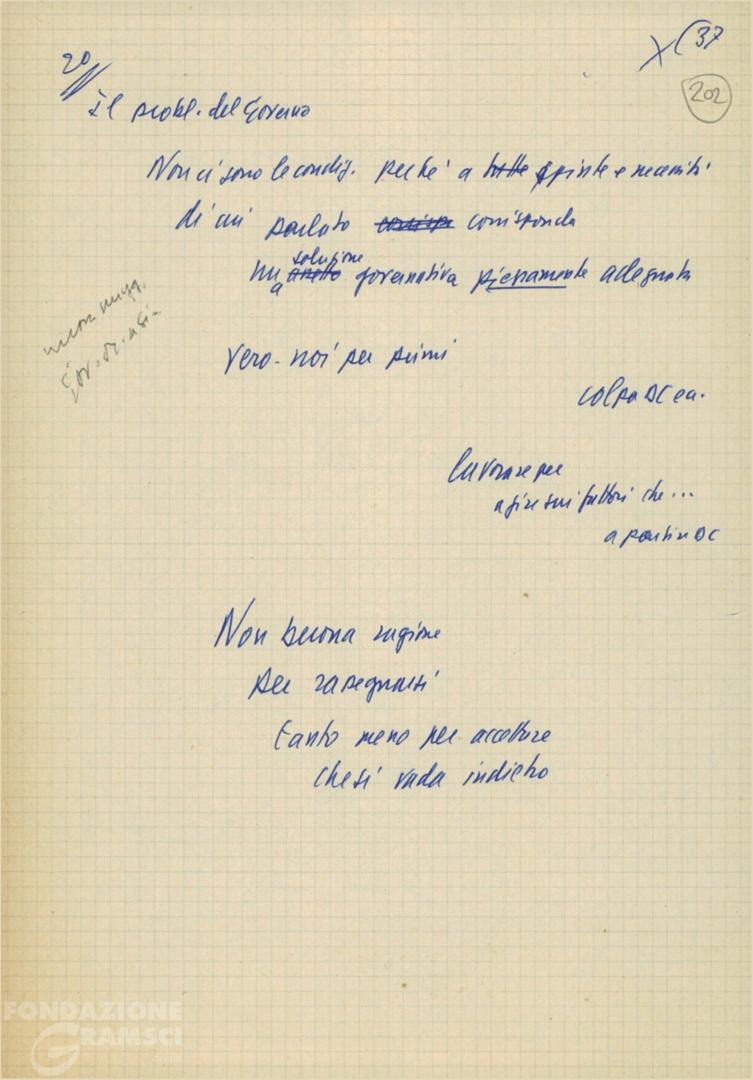 20
X (37
202
Il probl. del Governo
Non ci sono le condiz. perché a tutte spinte e necessità
di cui parlato corrisponda
una soluzione governativa pienamente adeguata
Vero - noi per primi
colpa DC ea.
lavorare per
agire sui fattori che...
a partire DC
Non buona ragione
per rassegnarsi
tanto meno per accettare
che si vada indietro
FONDAZIONE
GRAMSCI